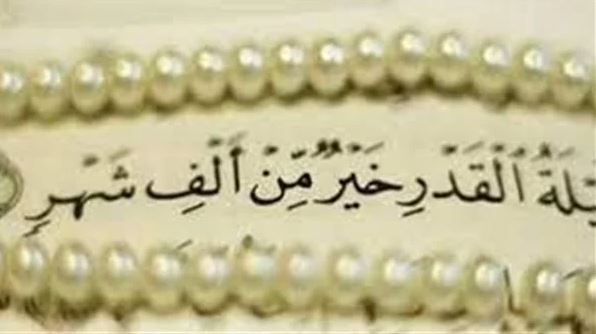 يْلَةُ الْقَدْرِ خَيْرٌ مِّنْ أَلْفِ شَهْرٍ